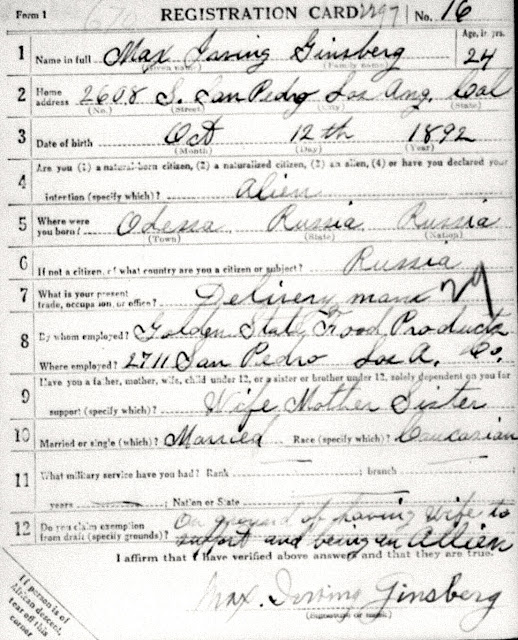 Form 1 REGISTRATION CARD 2297 No. 16
Age, in yrs.
1 Name in full Max Irving Ginsberg 24
(Given name) (Family name)
2 Home address 2608 S. San Pedro Los Ang. Cal
(No.) (Street) (City) (State)
3 Date of birth Oct 12th 1892
(Month) (Day) (Year)
Are you (1) a natural-born citizen, (2) a naturalized citizen, (3) an alien, (4) or have you declared your
4 intention (specify which)? Alien
5 Where were you born? Odessa Russia Russia
(Town) (State) (Nation)
6 If not a citizen, of what country are you a citizen or subject? Russia
7 What is your present trade, occupation, or office? Delivery man
8 By whom employed? Golden State Food Products
Where employed? 2711 San Pedro Los A. Co.
9 Have you a father, mother, wife, child under 12, or a sister or brother under 12, solely dependent on you for
support (specify which)? Wife Mother Sister
10 Married or single (which)? Married Race (specify which)? Caucasian
11 What military service have you had? Rank ; branch
years ; Nation or State
12 Do you claim exemption from draft (specify grounds)? On ground of having Wife to
support and being an Allien
I affirm that I have verified above answers and that they are true.
Max. Irving Ginsberg
(Signature or mark)
If person is of
African descent,
tear off this
corner